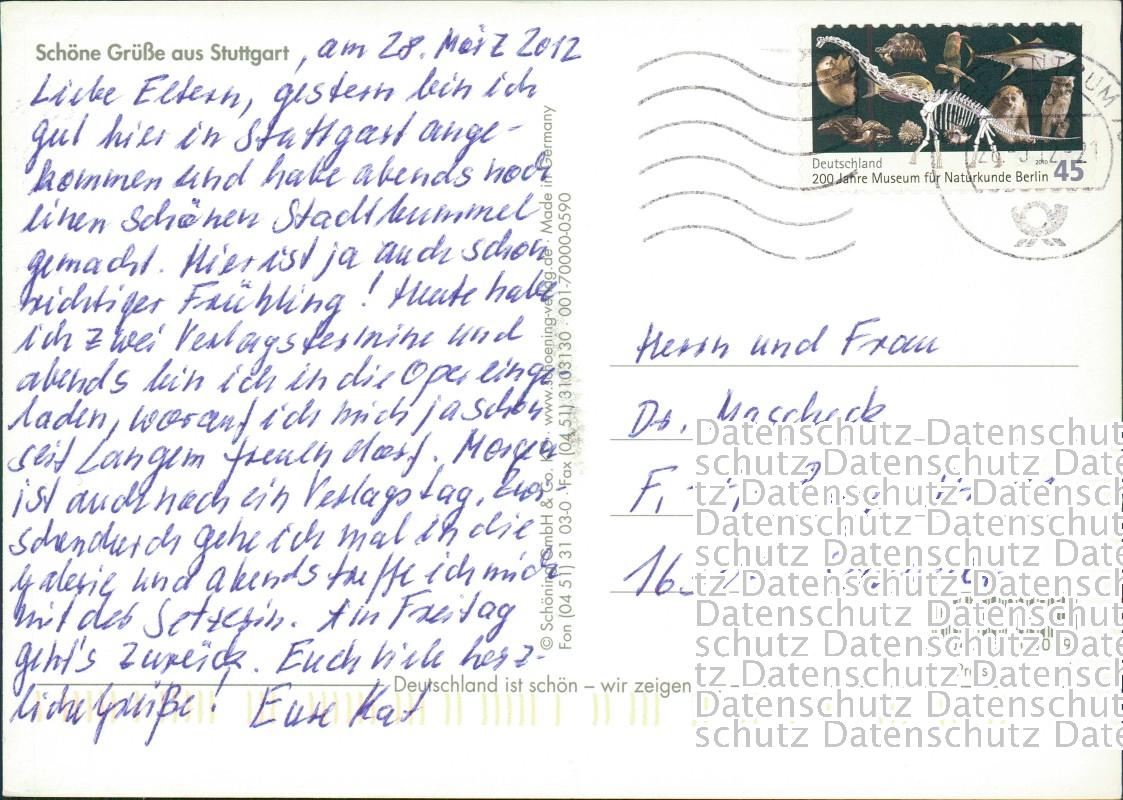 Schöne Grüße aus Stuttgart, am 28. März 2012
Liebe Eltern, gestern bin ich
gut hier in Stuttgart ange-
kommen und habe abends noch
einen schönen Stadtbummel
gemacht. Hier ist ja auch schon
richtiger Frühling! Heute habe
ich zwei Verlagstermine und
abends bin ich in die Oper einge-
laden, worauf ich mich ja schon
seit Langem freuen darf. Morgen
ist auch noch ein Verlagstag,
gehe ich mal in die
Galerie und abends treffe ich mich
mit der Setzerin. Am Freitag
geht's zurück. Euch viele herz-
liche Grüße! Eure Kat
© Schöning GmbH & Co. KG · www.schoening-verlag.de · Made in Germany
Fon (04 51) 31 03-0 · Fax (04 51) 3103130 · 001-70000-0590
Deutschland ist schön – wir zeigen
Deutschland
200 Jahre Museum für Naturkunde Berlin 45
2010
NTRUM
Herrn und Frau
Dr.
F
16
Datenschutz Datenschutz
schutz Datenschutz Date
tz Datenschutz Datensch
Datenschutz Datenschutz
schutz Datenschutz Date
tz Datenschutz Datensch
Datenschutz Datenschutz
schutz Datenschutz Date
tz Datenschutz Datensch
Datenschutz Datenschutz
schutz Datenschutz Date